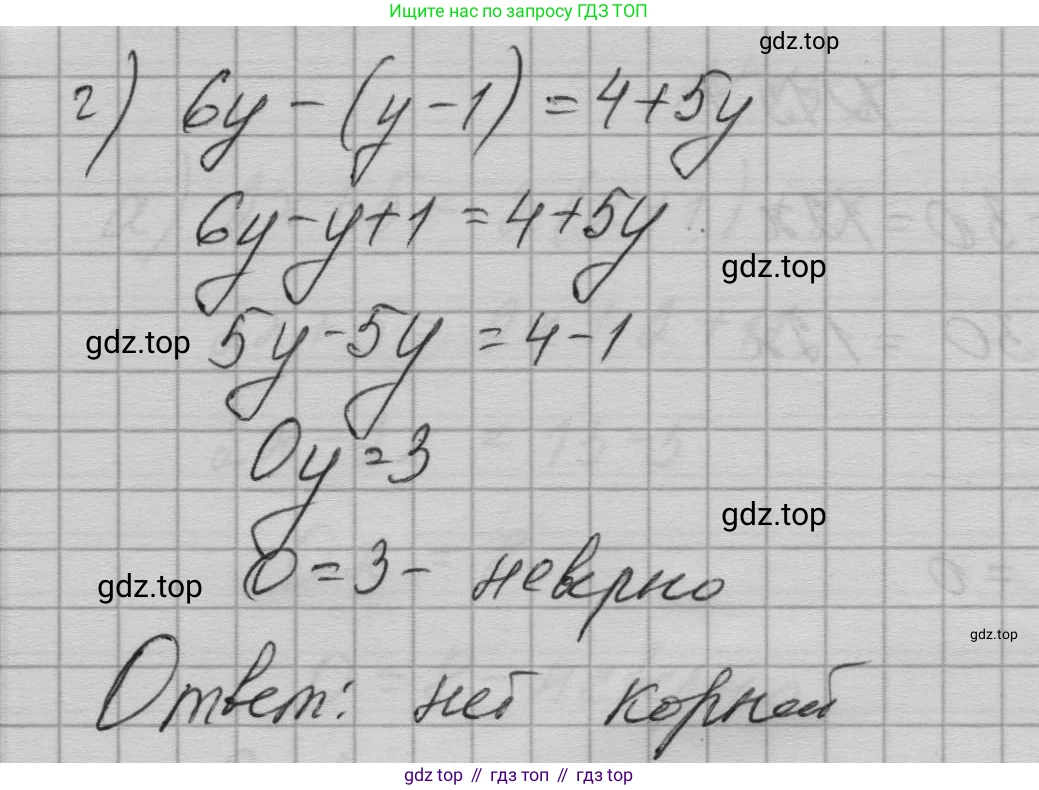 Ищите нас по запросу ГДЗ ТОП
gdz.top
г) 6y - (y - 1) = 4 + 5y
6y - y + 1 = 4 + 5y
gdz.top
gdz.top
5y - 5y = 4 - 1
0y = 3
gdz.top
0 = 3 - неверно
gdz.top
gdz.top
Ответ: нет корней
gdz top // гдз топ // gdz top